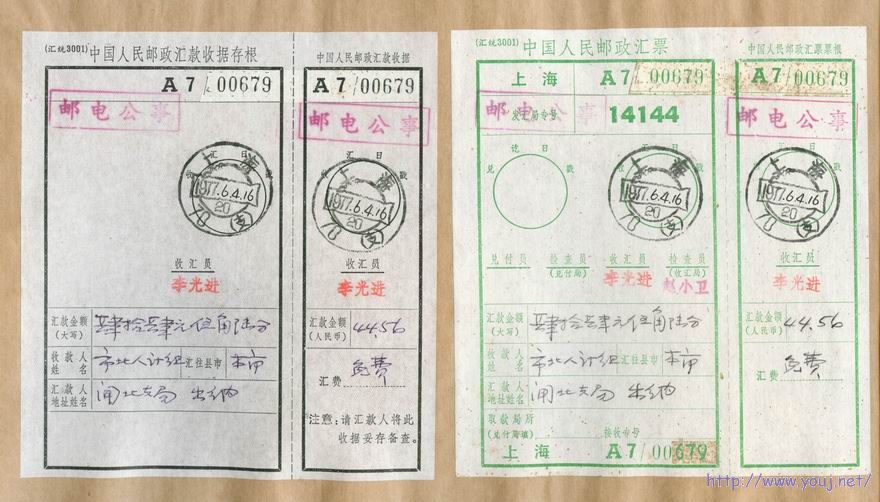 (汇统3001) 中国人民邮政汇款收据存根
A7/00679
邮电公事
汇 日
收 戳
上海
1977.6.4.16
20
78(支)
收汇员
李光进
汇款金额(大写) 肆拾肆元伍角陆分
收款人姓名 市北人计组 汇往县市 本市
汇款人地址姓名 闸北支局 出纳
中国人民邮政汇款收据
A7/00679
邮电公事
汇 日
收 戳
上海
1977.6.4.16
20
78(支)
收汇员
李光进
汇款金额(人民币) 44.56
汇费 免费
注意:请汇款人将此
收据妥存备查。
(汇统3001) 中国人民邮政汇票
上海 A7/00679
邮电公事
发汇局专号 14144
讫 日
兑 戳
汇 日
收 戳
上海
1977.6.4.16
20
78(支)
兑付员 检查员(兑付局) 收汇员 检查员(收汇局)
李光进 赵小卫
汇款金额(大写) 肆拾肆元伍角陆分
收款人姓名 市北人计组 汇往县市 本市
汇款人地址姓名 闸北支局 出纳
取款局所(兑付局填) 接收专号
上海 A7/00679
中国人民邮政汇票票根
A7/00679
邮电公事
汇 日
收 戳
上海
1977.6.4.16
20
78(支)
收汇员
李光进
汇款金额(人民币) 44.56
汇费 免费
http://www.youj.net/